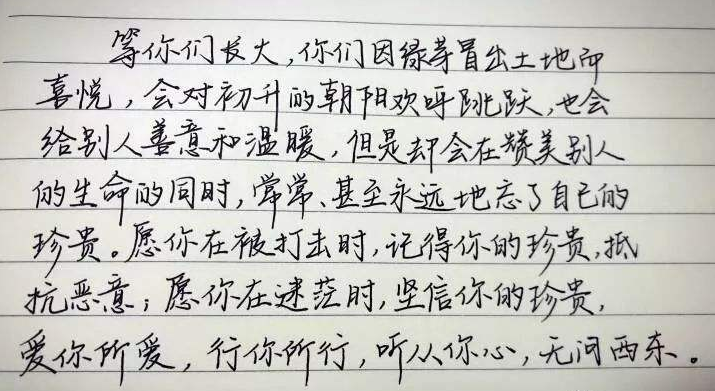 等你们长大，你们因绿芽冒出土地而
喜悦，会对初升的朝阳欢呼跳跃，也会
给别人善意和温暖，但是却会在赞美别人
的生命的同时，常常、甚至永远地忘了自己的
珍贵。愿你在被打击时，记得你的珍贵，抵
抗恶意；愿你在迷茫时，坚信你的珍贵，
爱你所爱，行你所行，听从你心，无问西东。